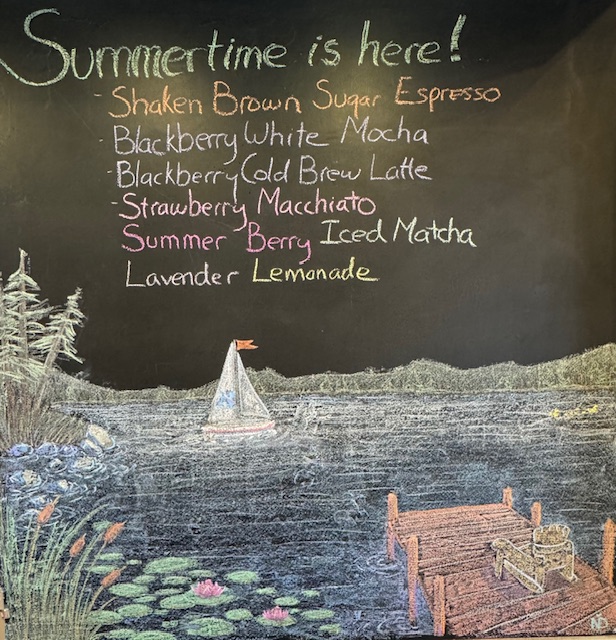 Summertime is here!
- Shaken Brown Sugar Espresso
- Blackberry White Mocha
- Blackberry Cold Brew Latte
- Strawberry Macchiato
Summer Berry Iced Matcha
Lavender Lemonade